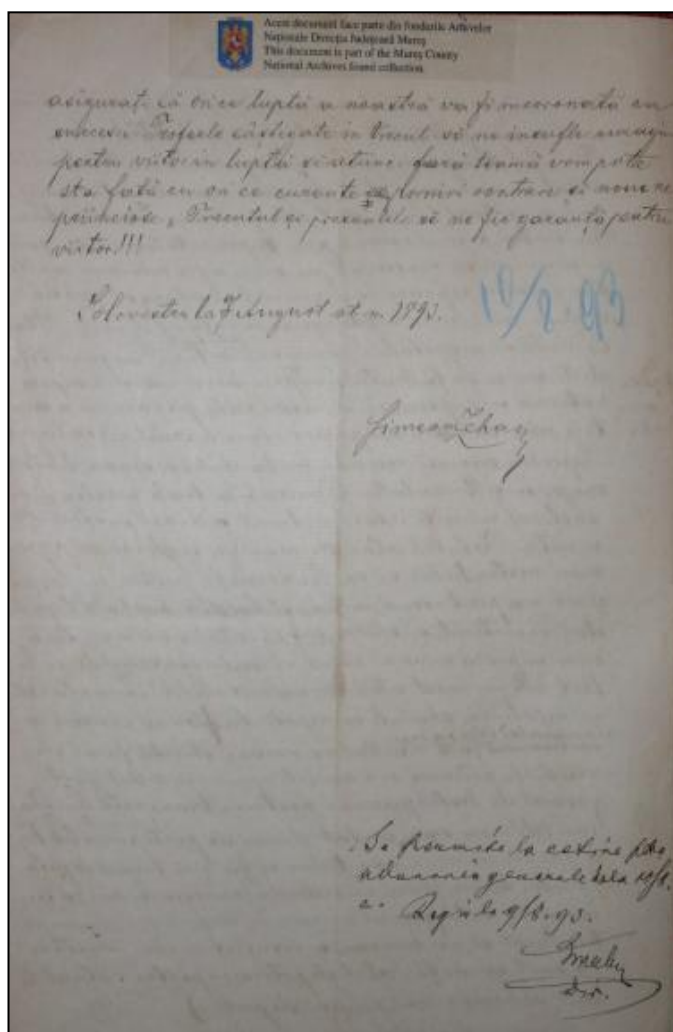 Acest document face parte din fondurile Arhivelor
Naționale Direcția Județeană Mureș
This document is part of the Mureș County
National Archives found collection
asigurați că ori ce luptă a noastră va fi incoronată cu
succesu. Trofeele câștigate in trecut să ne insufle curagiu
pentru viitor in luptă și atunci fără teamă vom pute
sta față cu ori ce curente porniri contrare si noue ne
priincióse. Trecutul și presentele să ne fie garantă pentru
viitor!!!
la 7 August st. n. 1893.
10/8 93
Simeon Zehan
Se permite la cetire
adunarea generale dela 10/8.
a. 9/8. 93.
Dir.